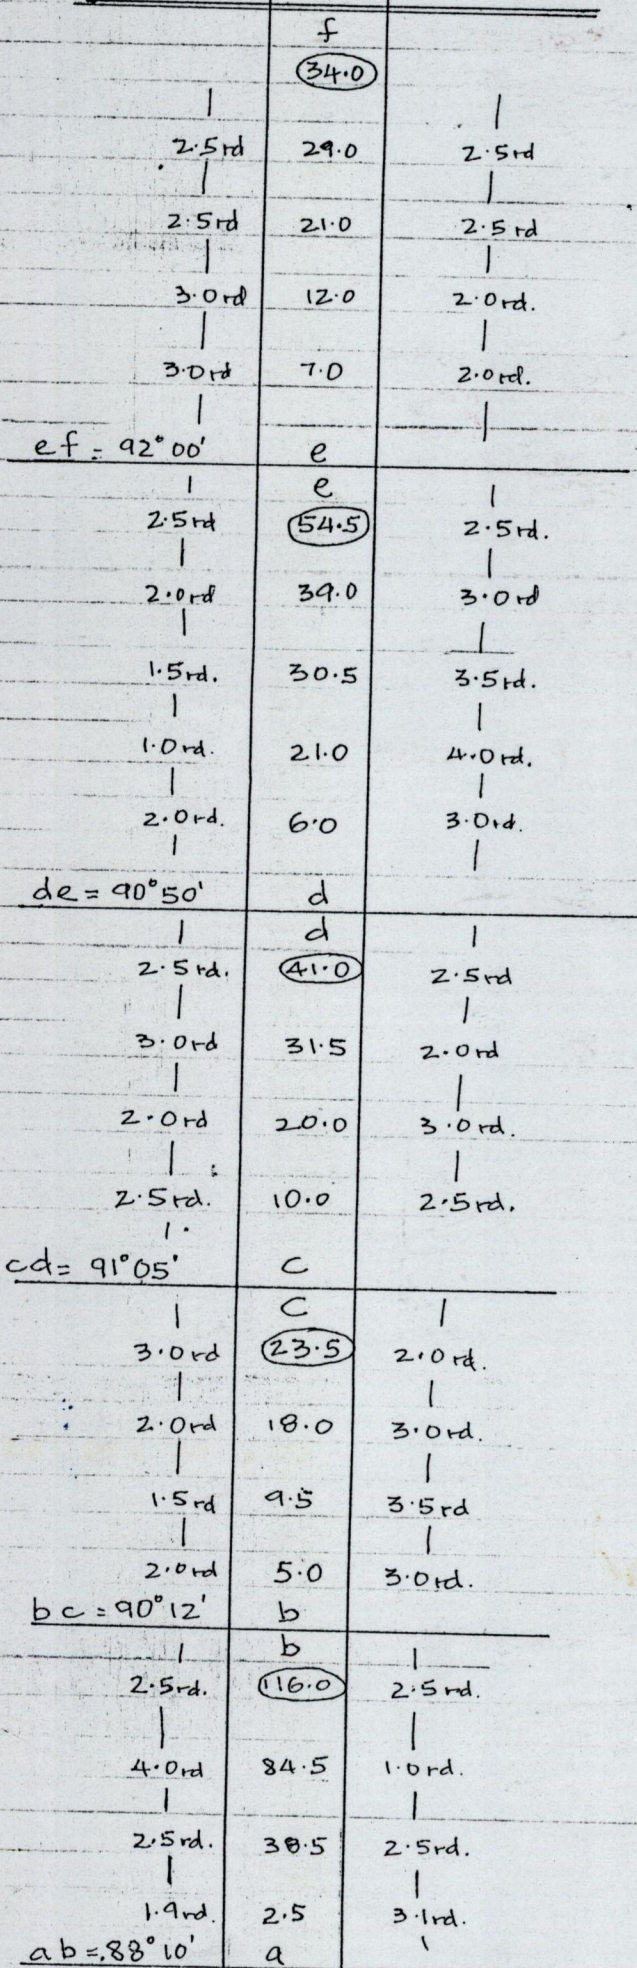 f
34.0
2.5rd 29.0 2.5rd
2.5rd 21.0 2.5rd
3.0rd 12.0 2.0rd.
3.0rd 7.0 2.0rd.
ef = 92°00' e
e
2.5rd 54.5 2.5rd.
2.0rd 39.0 3.0rd
1.5rd. 30.5 3.5rd.
1.0rd. 21.0 4.0rd.
2.0rd. 6.0 3.0rd.
de = 90°50' d
d
2.5rd. 41.0 2.5rd
3.0rd 31.5 2.0rd
2.0rd 20.0 3.0rd.
2.5rd. 10.0 2.5rd.
cd = 91°05' c
c
3.0rd 23.5 2.0rd.
2.0rd 18.0 3.0rd.
1.5rd 9.5 3.5rd
2.0rd 5.0 3.0rd.
bc = 90°12' b
b
2.5rd. 116.0 2.5rd.
4.0rd 84.5 1.0rd.
2.5rd. 2.5rd.
1.9rd. 2.5 3.1rd.
ab = 88°10' a